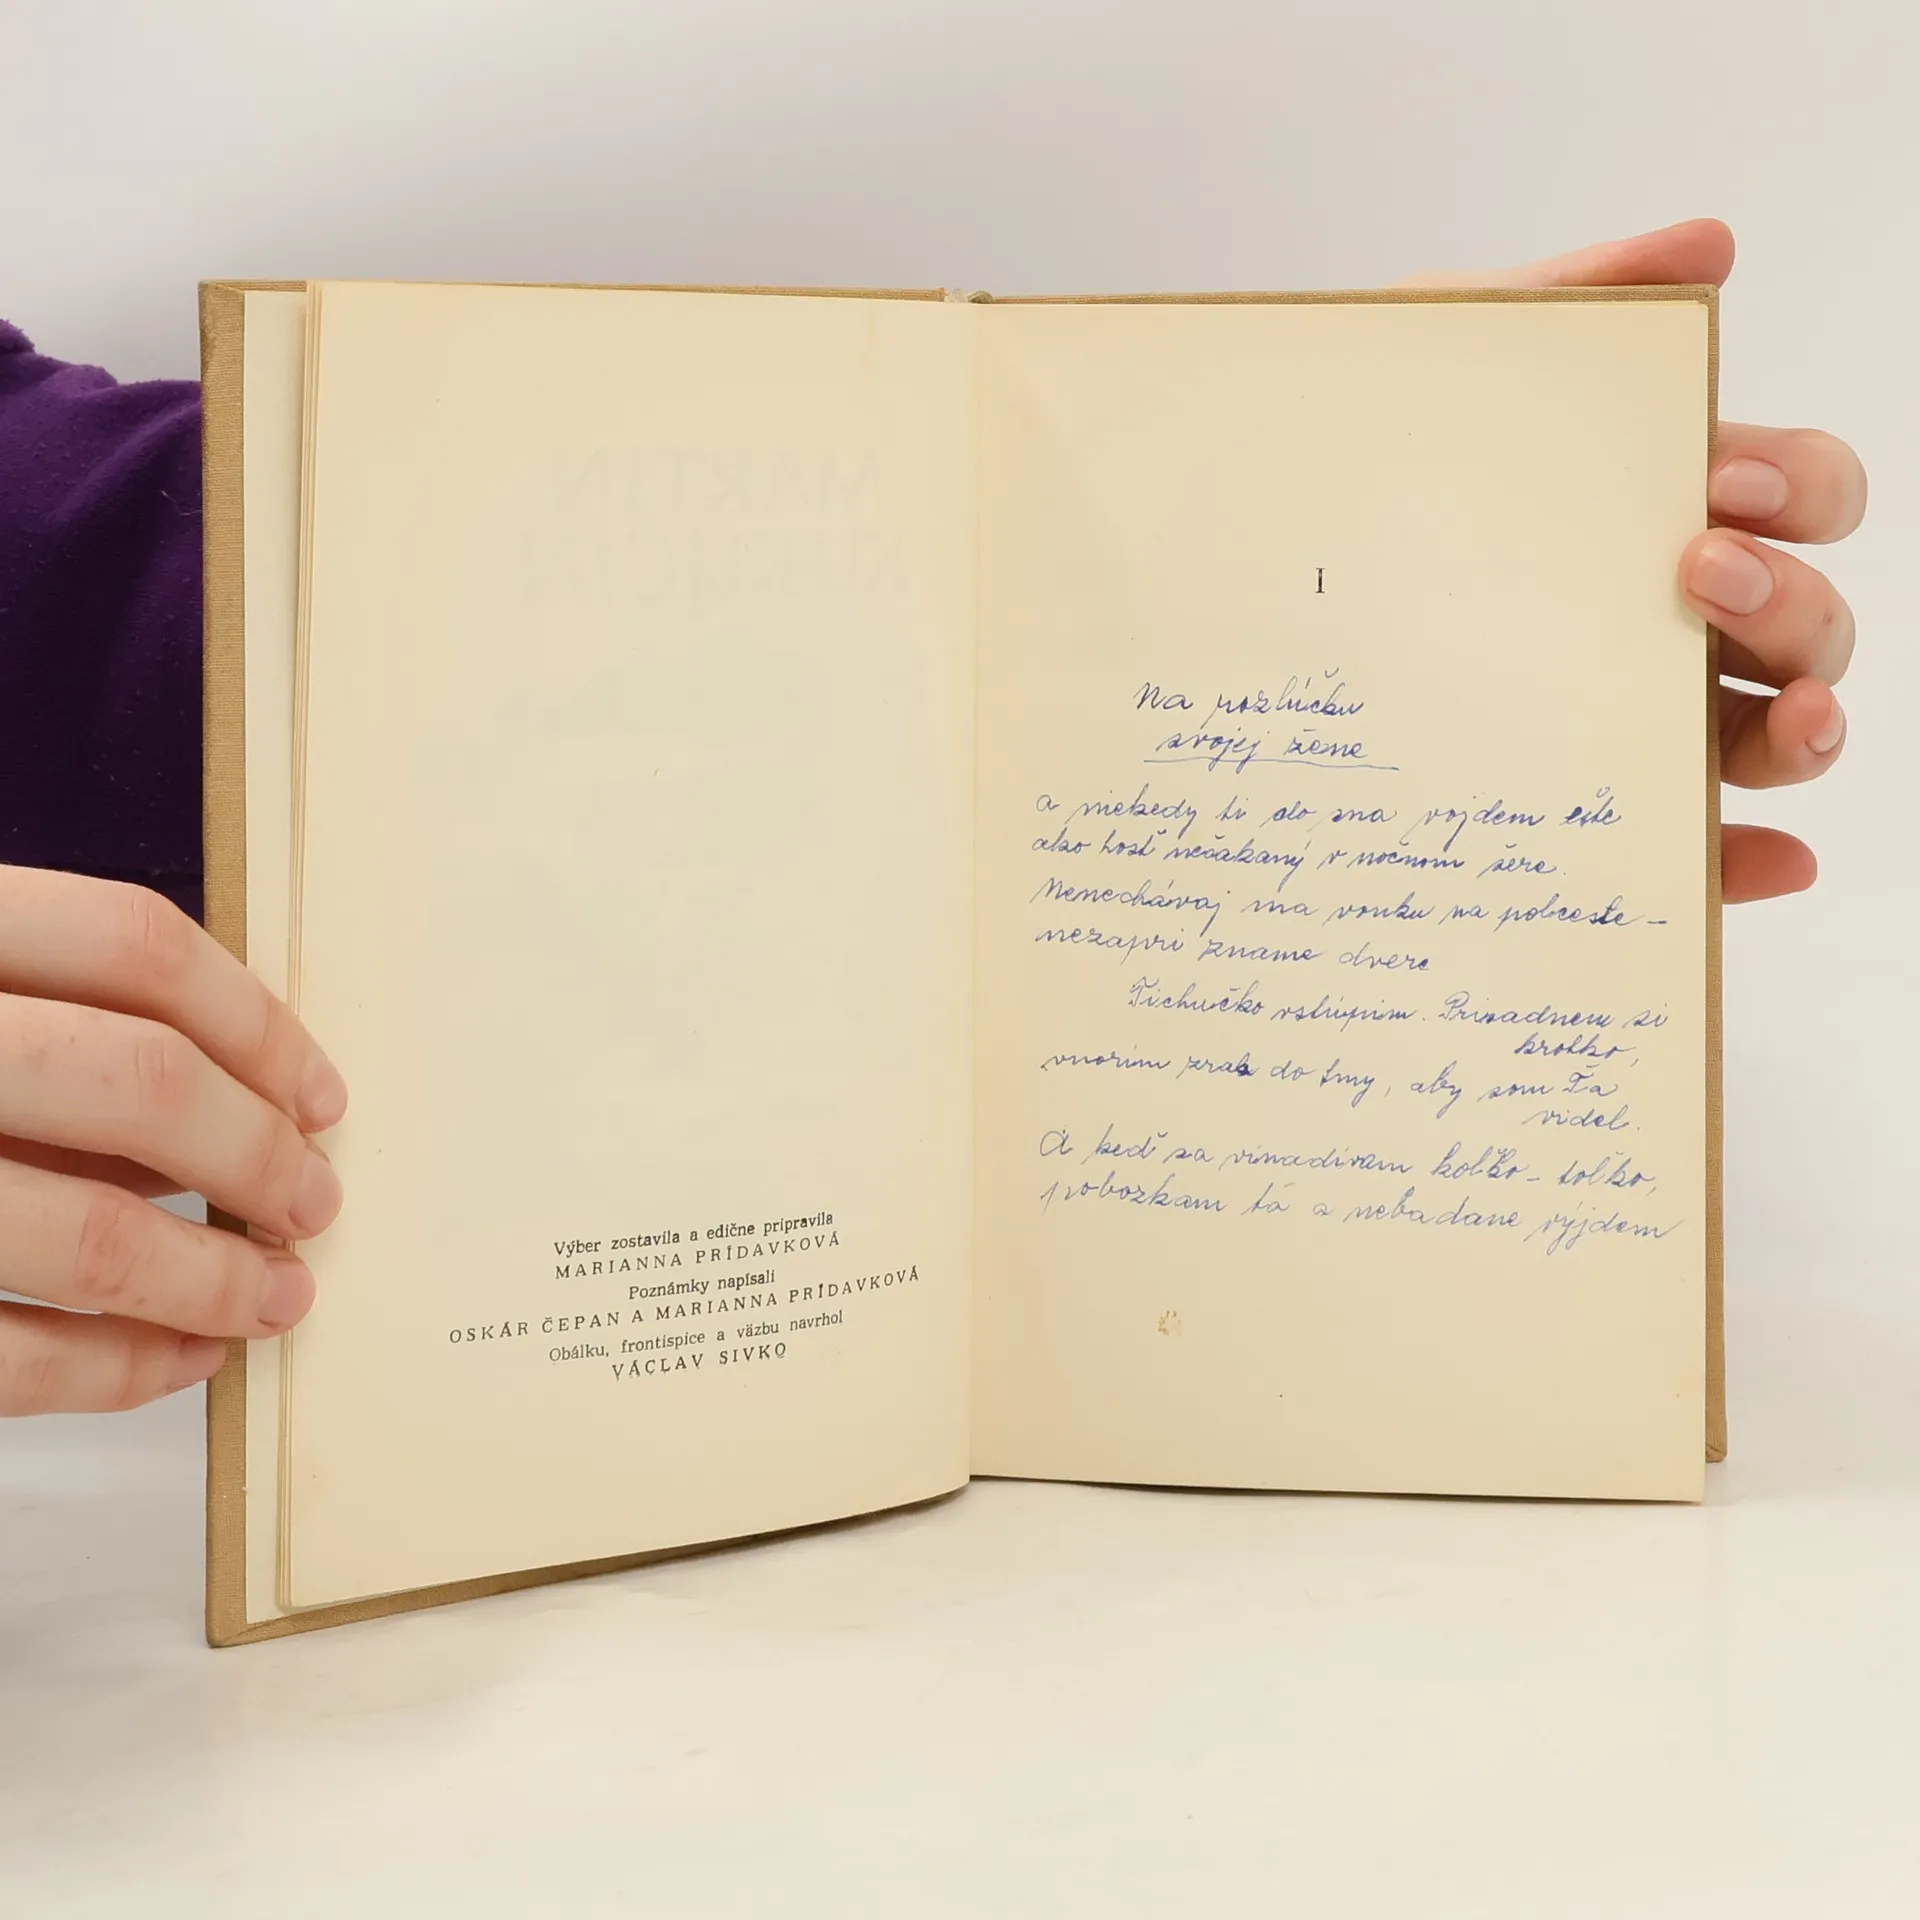 Výber zostavila a edične pripravila
MARIANNA PRÍDAVKOVÁ
Poznámky napísali
OSKÁR ČEPAN A MARIANNA PRÍDAVKOVÁ
Obálku, frontispice a väzbu navrhol
VÁCLAV SIVKO
I
Na rozlúčku
svojej žene
a niekedy ti do sna vojdem ešte
ako hosť nečakaný v nočnom šere.
Nenechávaj ma vonku na polceste –
nezapri zname dvere
Tichučko vstúpim. Prisadnem si
krotko,
vnorim zrak do tmy, aby som Ťa
videl.
A keď sa vinadívam koľko – toľko,
pobozkam ťa a nebadane výjdem